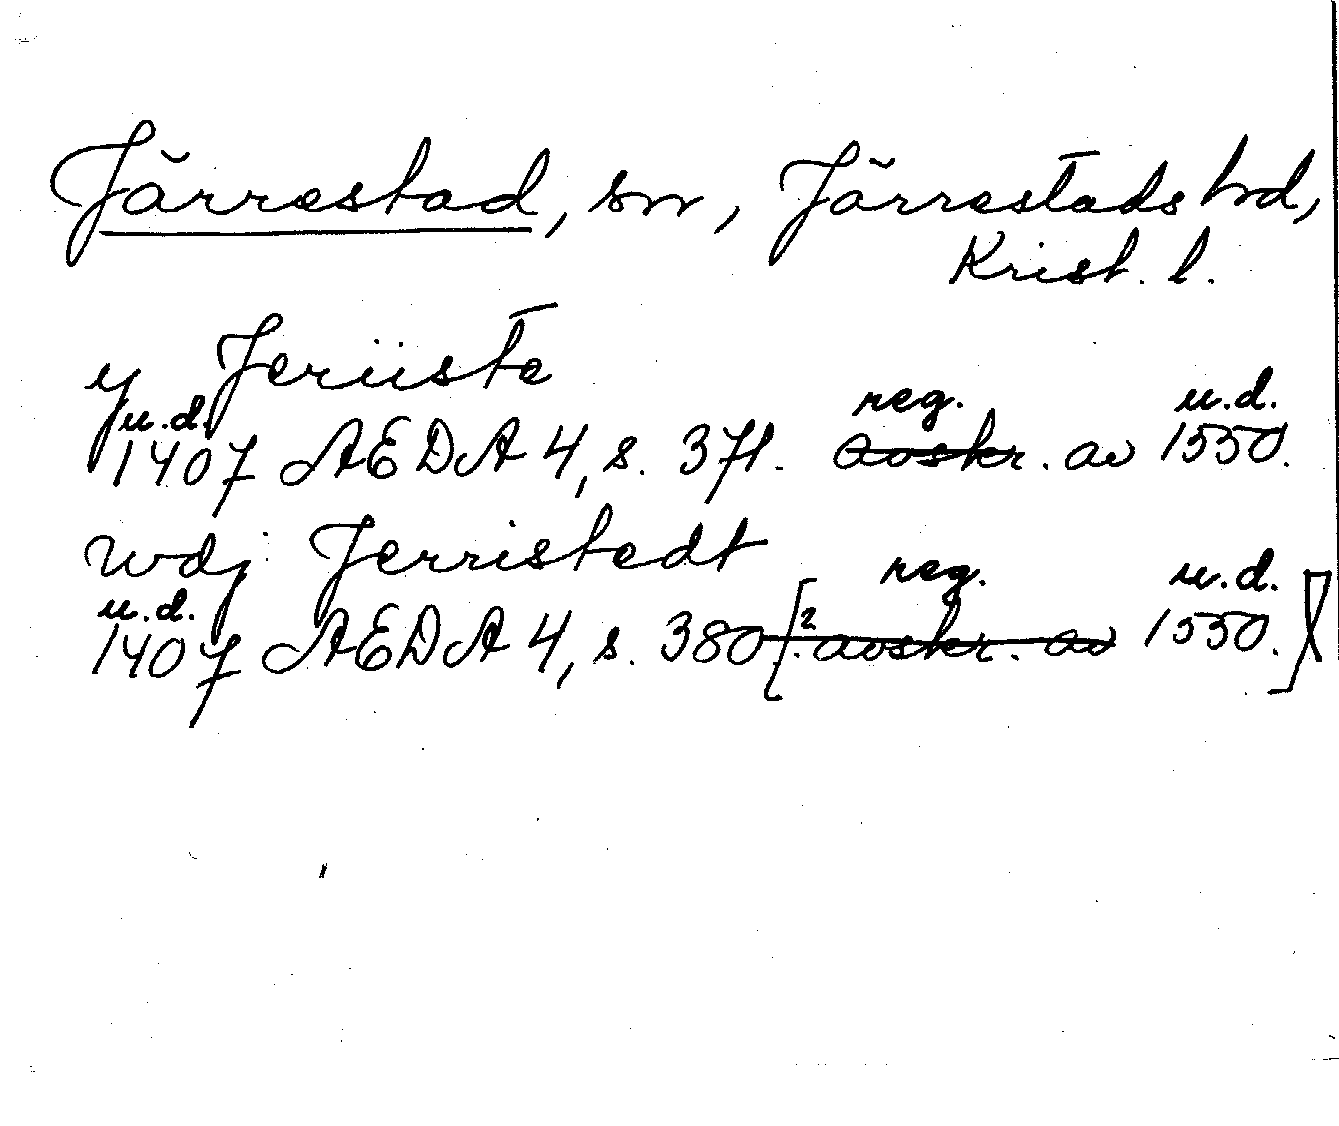 Järrestad, sn, Järrestads hd,
Krist. l.
y Jeriiste
u.d. reg. u.d.
1407 AEDA 4, s. 371. avskr. av 1550.
wdj Jerristedt
u.d. reg. u.d.
1407 AEDA 4, s. 380 [2. avskr. av 1550.]